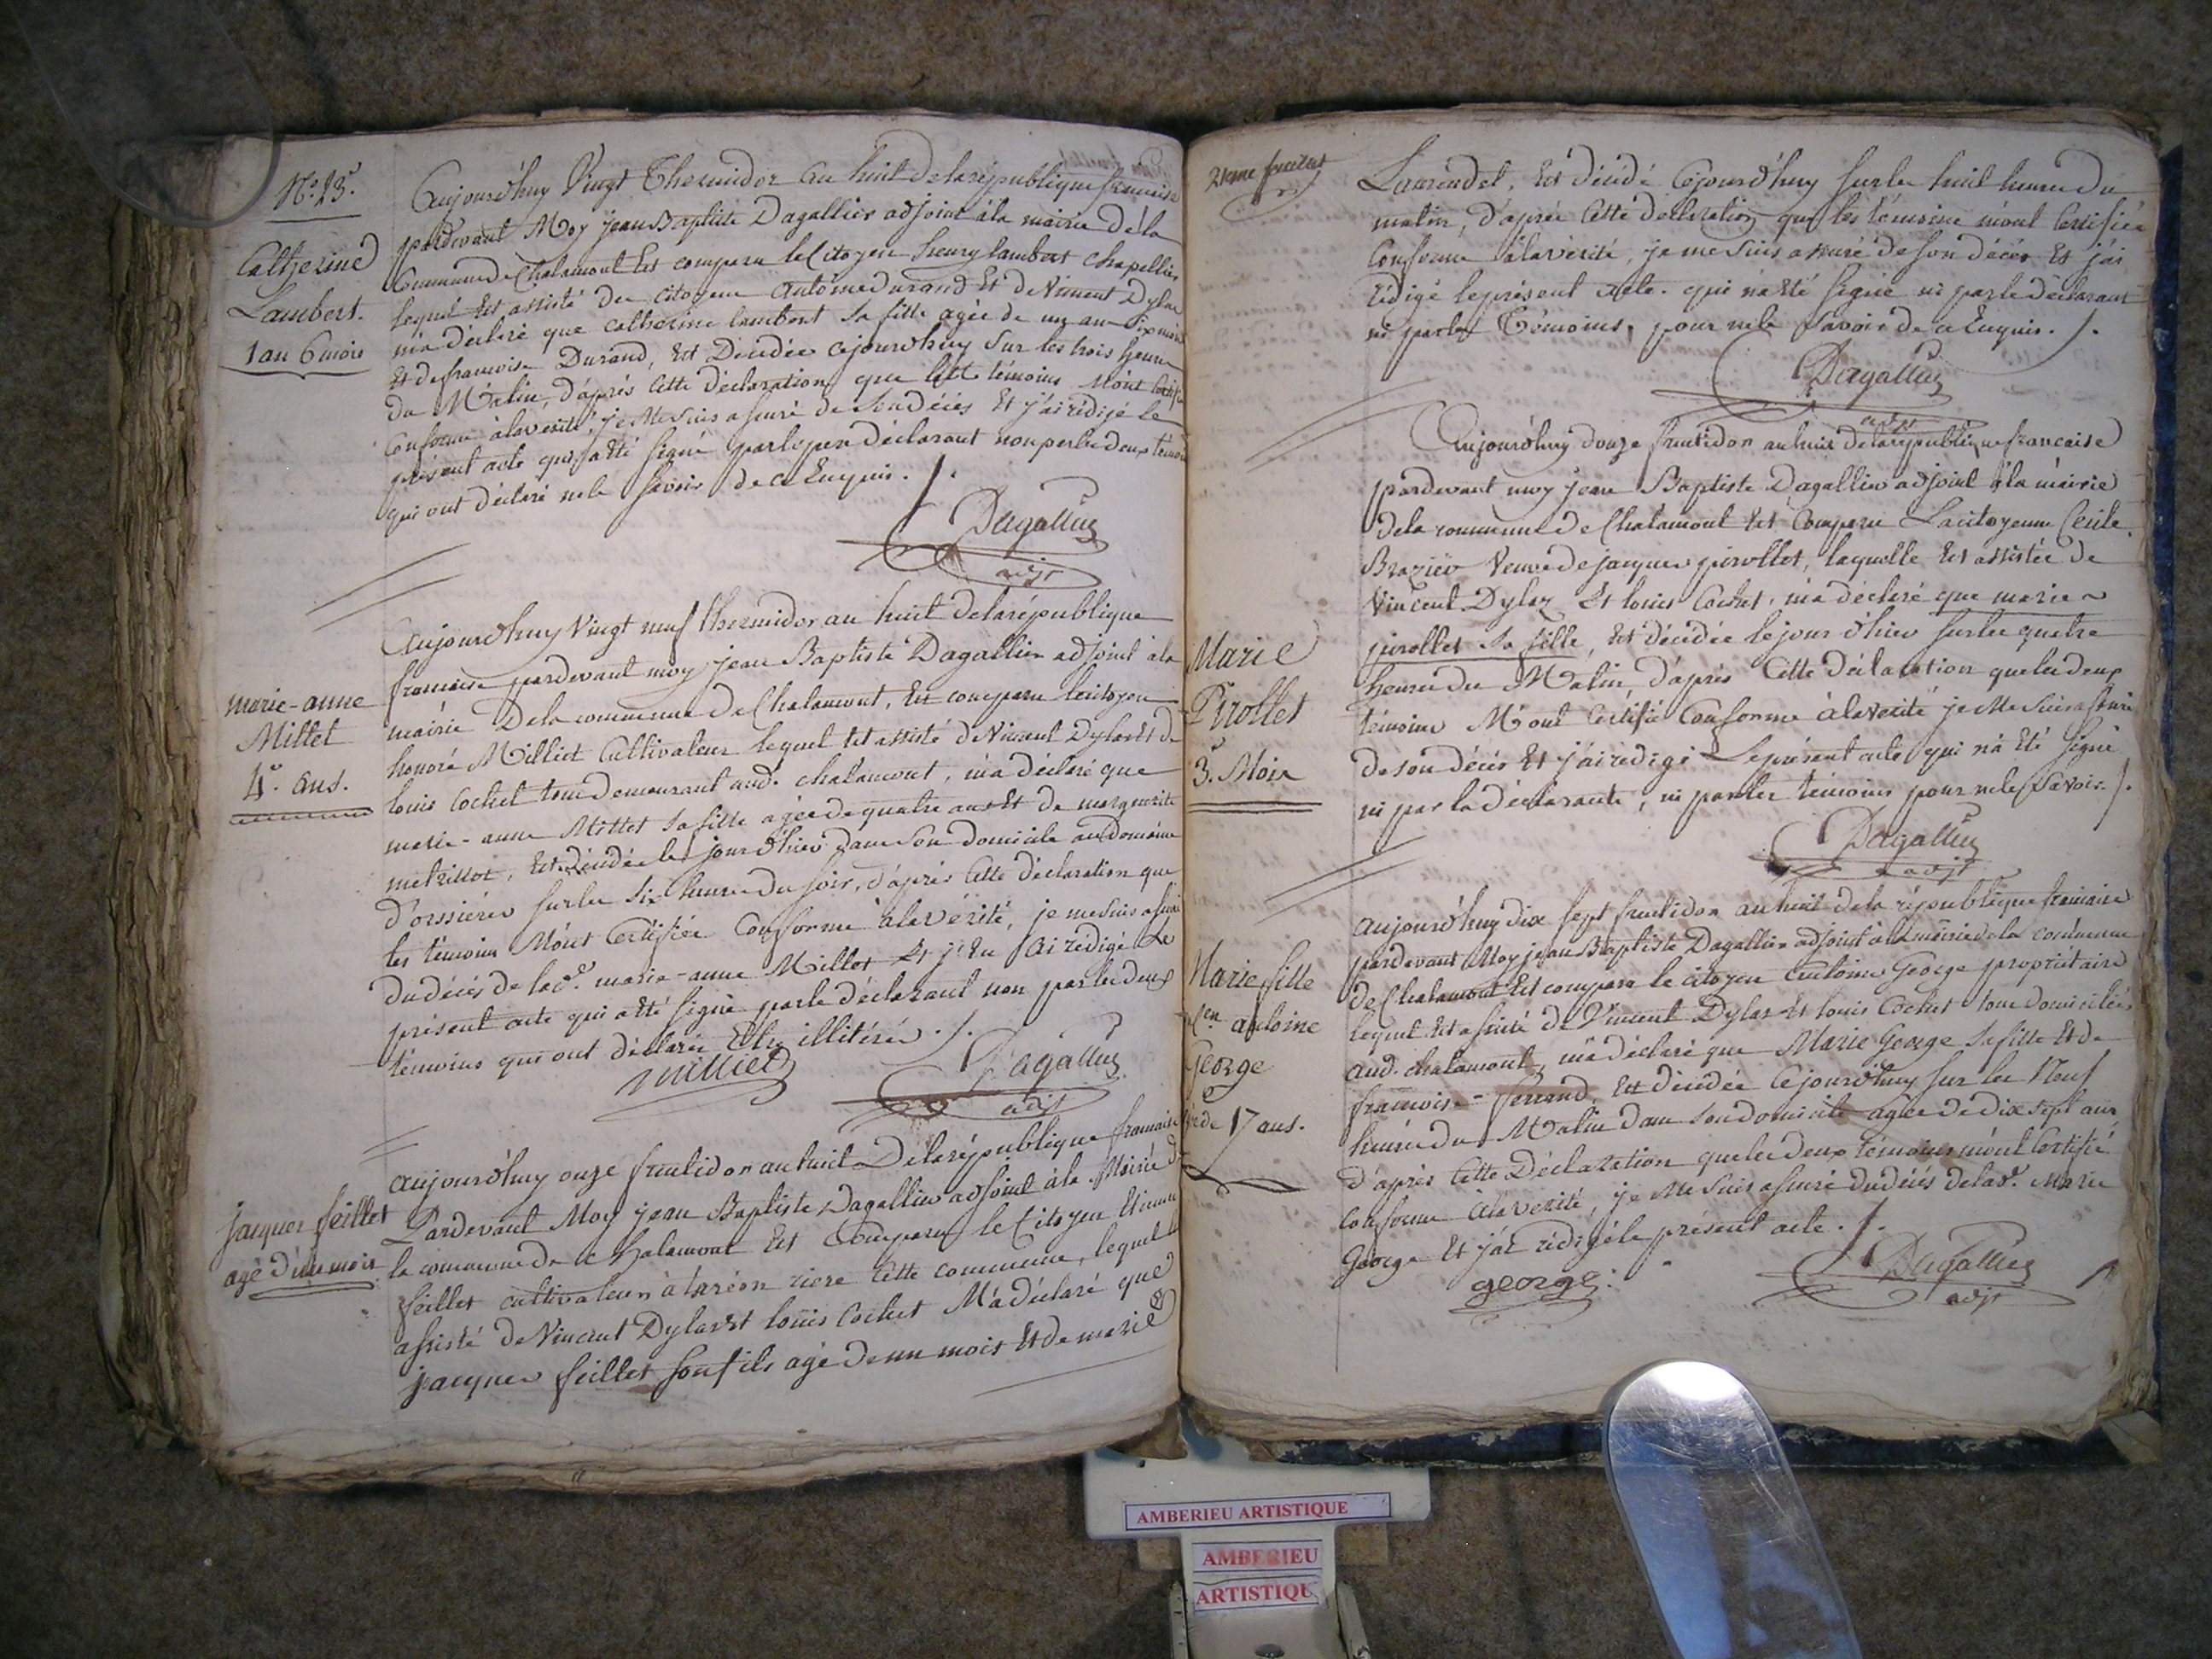 N.° 23.
Catherine
Lambert.
1 an 6 mois
Aujourd'huy Vingt Thermidor an huit de la république francaise
pardevant Moy jean Baptiste Dagallier adjoint à la mairie de la
Commune de Chalamont Est comparu le Citoyen henry lambert Chapellier
lequel Est assisté des citoyens antoine durand Et de Vincent Dylas
m'a déclaré que catherine lambert sa fille agée de un an six mois
Et de francoise Durand, Est Décédée cejourd'huy sur les trois heures
du Matin, d'après cette déclaration que les témoins M'ont certifié
Conforme à la vérité, je Me suis assuré de son décès Et j'ai rédigé le
présent acte qui a été signé par le père déclarant non par les deux témoins
qui ont déclaré ne le savoir de ce Enquis ./.
Dagallier
adjt
marie-anne
Millet
4. ans.
Aujourd'huy Vingt neuf thermidor an huit de la république
francaise pardevant moy jean Baptiste Dagallier adjoint à la
mairie De la commune de Chalamont, Est comparu le citoyen
honoré Milliet Cultivateur lequel Est assisté de Vincent Dylas Et de
louis Cochet tous demeurant aud. chalamont, m'a déclaré que
marie-anne Millet sa fille agée de quatre ans Et de marguerite
metrillot, Est Décédée le jour d'hier dans son domicile au Domaine
d'orssières sur les six heures du soir, d'après cette déclaration que
les témoins M'ont Certifiée Conforme à la vérité, je me suis assuré
du décès de lad.e marie-anne Millet Et j'En ai rédigé Le
présent acte qui a été signé par le déclarant non par les deux
témoins qui ont déclaré Etre illitérés ./.
Milliet
Dagallier
adjt
jacques feillet
agé d'un mois
aujourd'huy onze fructidor an huit De la république francaise
Pardevant Moy jean Baptiste Dagallier adjoint à la Mairie de
la commune de Chalamont Est Comparu le Citoyen Etienne
feillet cultivateur à laréon riere cette commune, lequel
assisté de Vincent Dylas Et louis Cochet M'a déclaré que
jacques feillet son fils agé de un mois Et de marie
21eme feuillet
Laurendet, Est décédé cejourd'huy sur les huit heures du
matin, d'après cette déclaration que les témoins m'ont Certifiée
Conforme à la vérité, je me suis assuré de son décès Et j'ai
rédigé le présent acte. qui n'a été signé ni par le déclarant
ni par les Témoins, pour ne le savoir de ce Enquis ./.
Dagallier
adjt
Marie
Pirollet
3. Mois
Aujourd'huy douze fructidor an huit de la république francaise
pardevant moy jean Baptiste Dagallier adjoint à la mairie
de la commune de Chalamont Est Comparu La citoyenne Cécile
Brazier Veuve de jacques pirollet, laquelle Est assistée de
Vincent Dylas Et louis Cochet, m'a déclaré que marie
pirollet sa fille, Est décédée le jour d'hier sur les quatre
heures du Matin, d'après Cette déclaration que les deux
témoins M'ont Certifié Conforme à la verité je Me suis assuré
de son décès Et j'ai redigé Le présent acte qui n'a Eté signé
ni par la déclarante, ni par les témoins pour ne le savoir ./.
Dagallier
adjt
Marie fille
antoine
George
17 ans.
aujourd'huy dix sept fructidor an huit de la république francaise
pardevant Moy jean Baptiste Dagallier adjoint à la mairie de la commune
de Chalamont Est comparu le citoyen antoine George propriétaire
lequel Est assisté de Vincent Dylas Et louis Cochet tous domiciliés
aud. chalamont, m'a déclaré que Marie George sa fille Et de
francoise ferrand, Est décédée cejourd'huy sur les Neuf
heures du Matin dans son domicile agée de dix sept ans
d'après cette Déclaration que les deux témoins m'ont Certifié
conforme à la verité, je Me suis assuré du décès de lad.e Marie
George Et j'ai rédigé le présent acte ./.
george
Dagallier
adjt
AMBERIEU ARTISTIQUE
AMBERIEU
ARTISTIQU